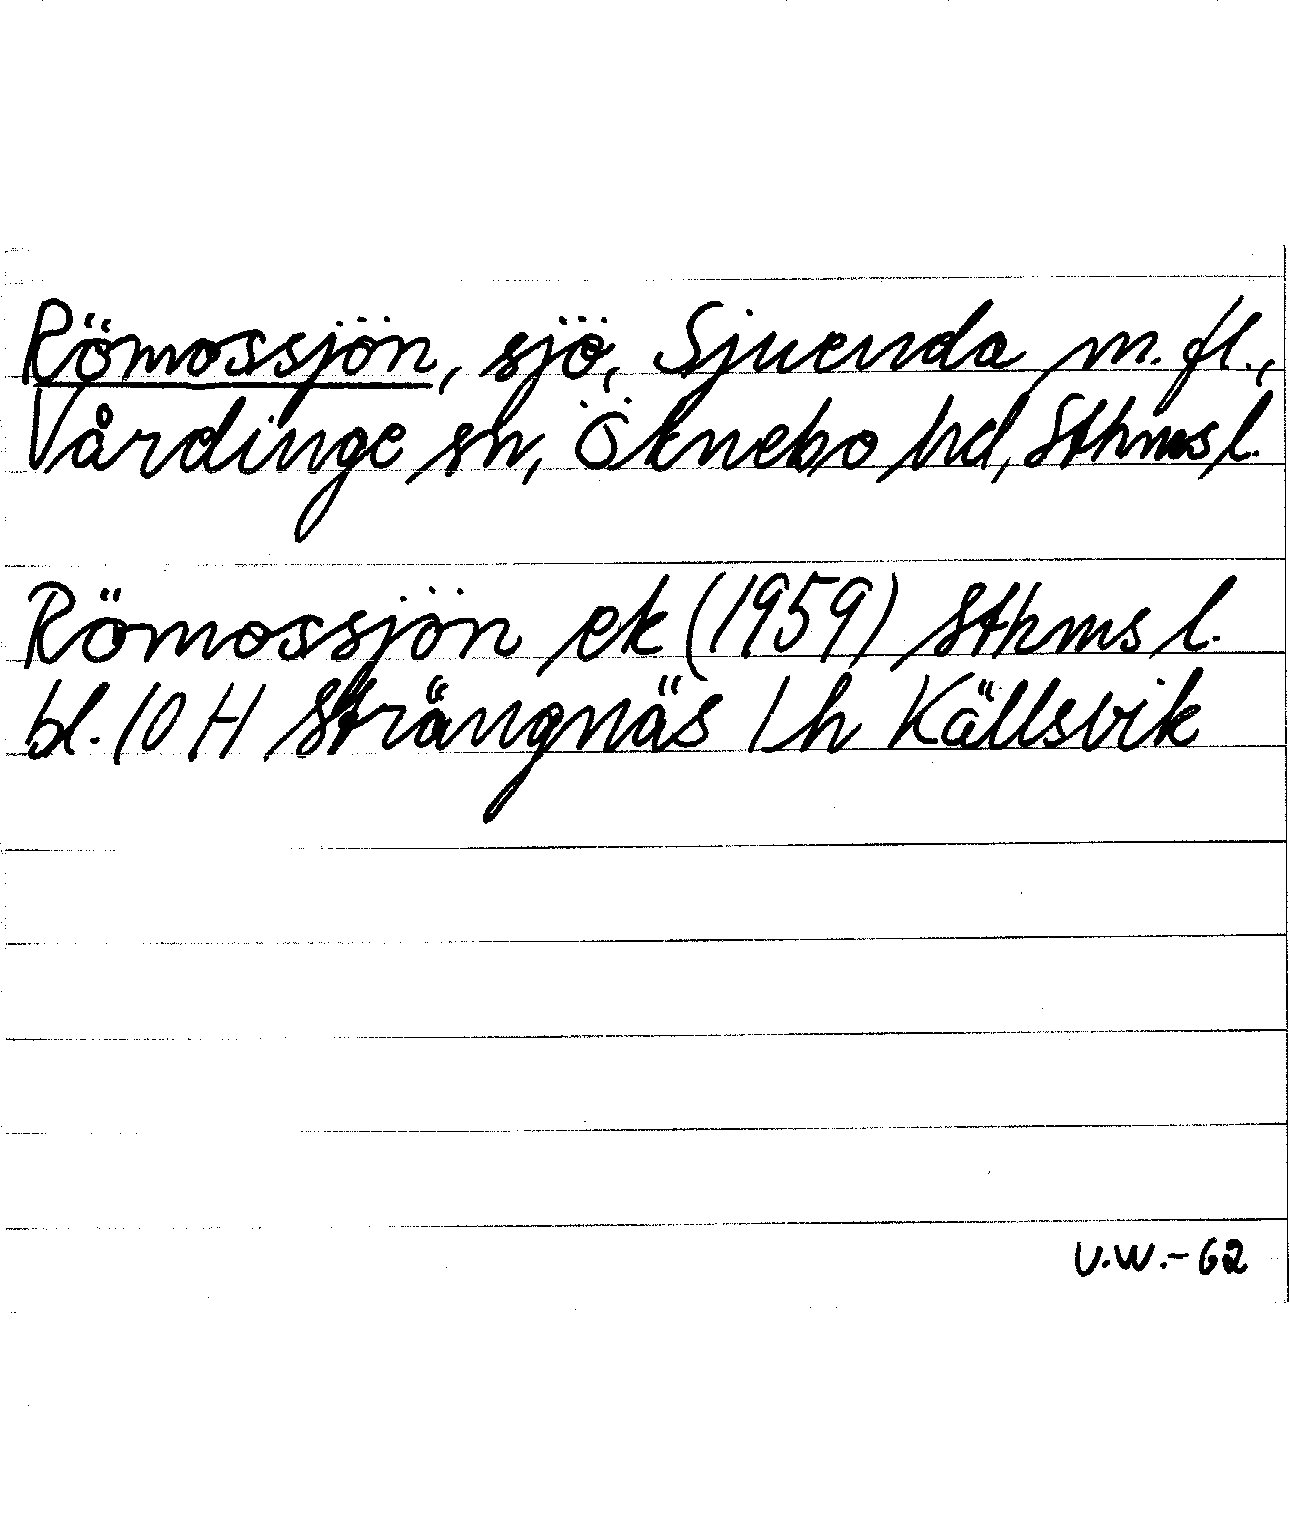 Römossjön, sjö, Sjuenda m.fl.,
Vårdinge sn, Öknebo hd, Sthms l.
Römossjön ek (1959) Sthms l.
bl. 10 H Strängnäs 1 h Källsvik
U.W.-62